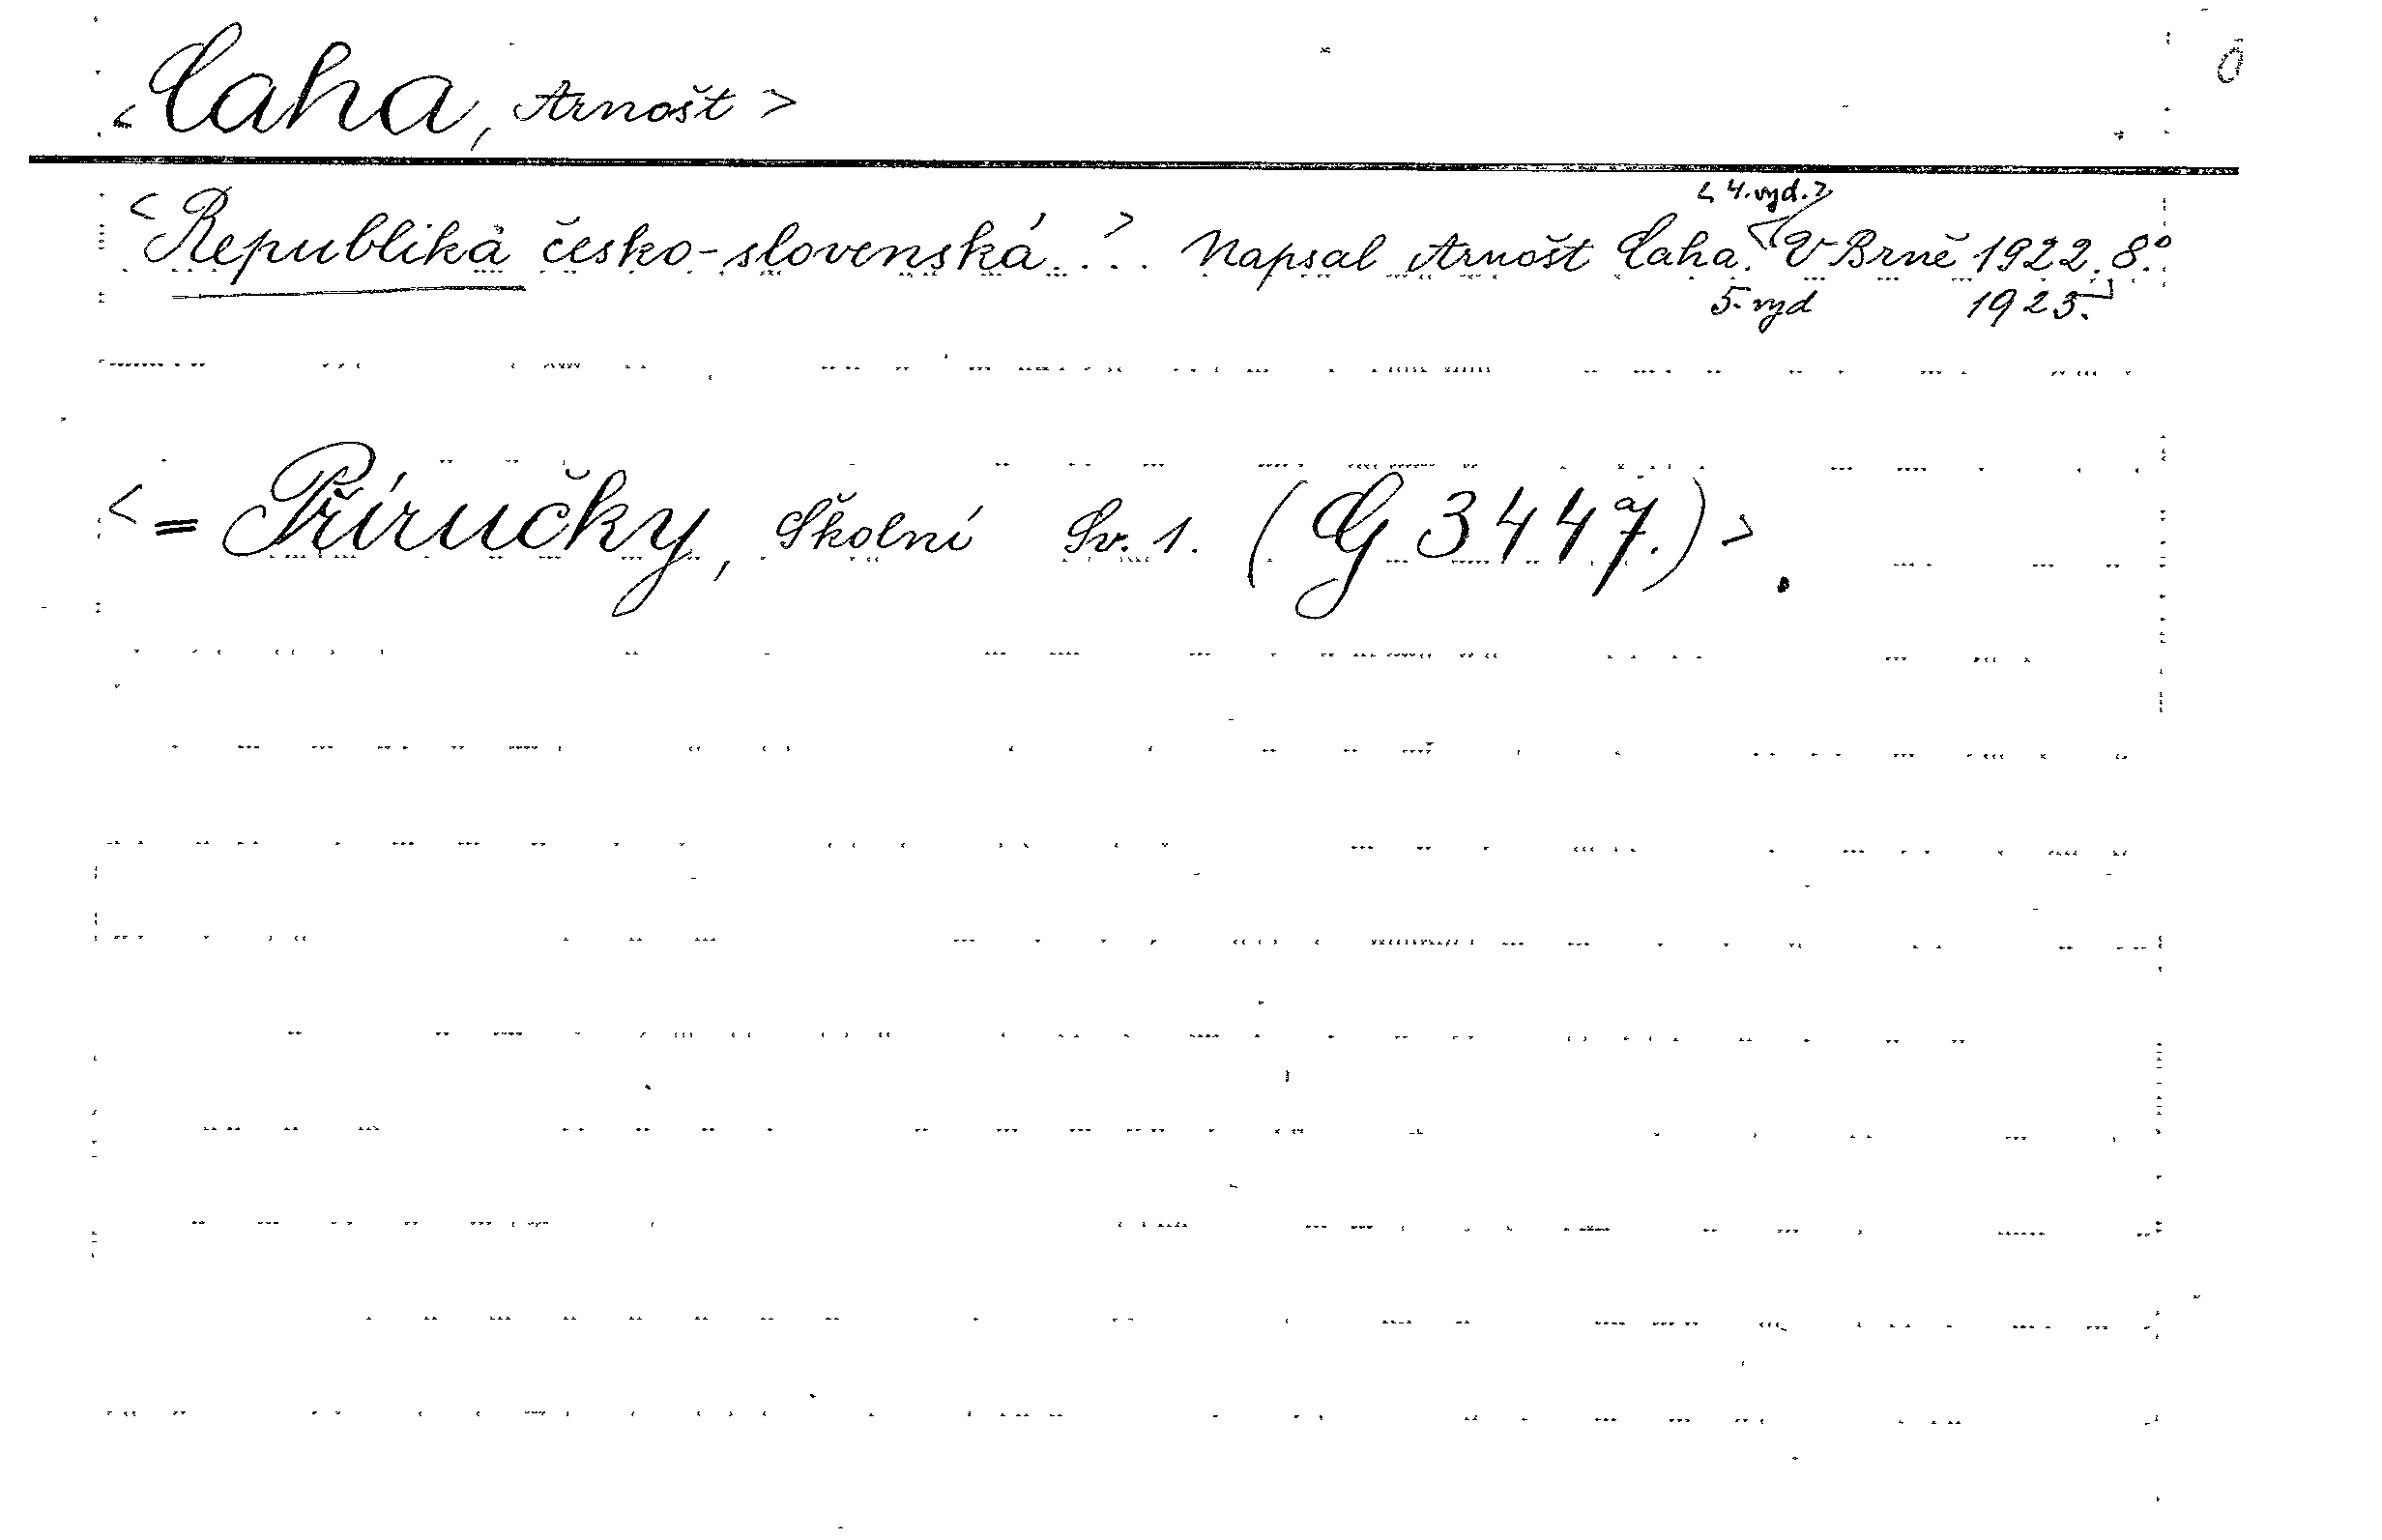 <Caha, Arnošt>
0
<4. vyd.>
<Republika česko-slovenská...> Napsal Arnošt Caha. V Brně 1922. 8°.
5. vyd 1923.
<= Příručky, Školní Sv. 1. (G 3447.)>.